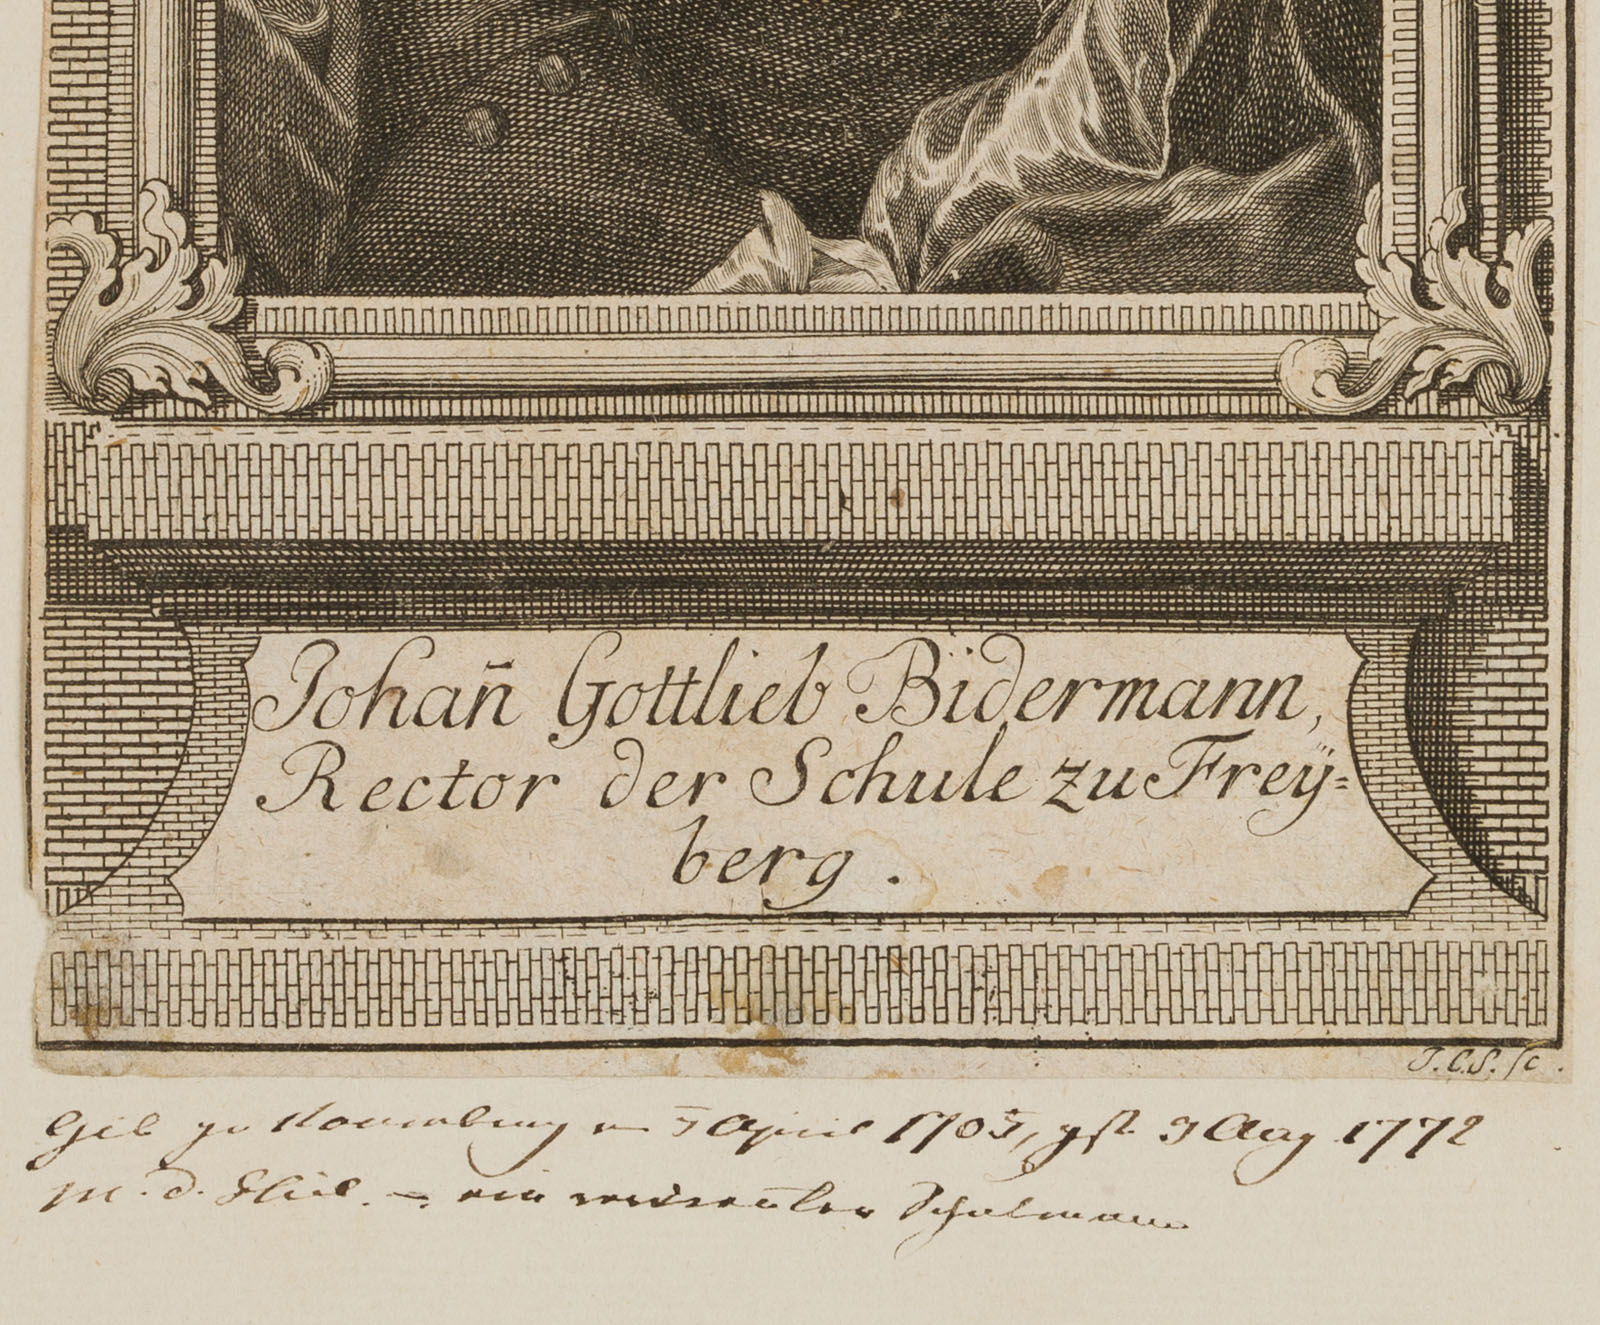 Johan̄ Gottlieb Bïdermann,
Rector der Schule zu Freÿ=
berg .
J.C.S. sc .
Geb zu Naumburg 5 April 1705, gst. 3 Aug 1772
M. d. Phil. = ein verdienter Schulmann